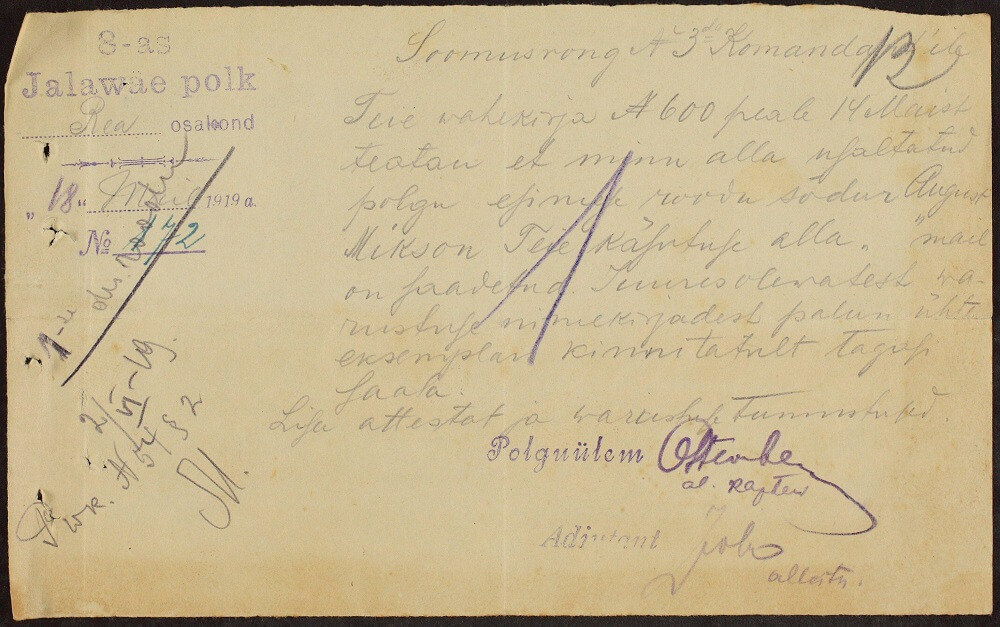 8-as
Jalawäe polk
Rea osakond
„18“ Mail 1919 a.
№ 1172
Soomusrong № 3 Komandöri'ile
13
Teie wahekirja № 600 peale 14 Maist
teatan et minu alla usaltatud
polgu esimese roodu södur August
Mikson Teie käsutuse alla. " mail
on saadetud. Juuresolewatest wa-
rustuse nimekirjadest palun ühte
eksemplari kinnitatult tagasi
saata.
Lisa attestat ja warustuse tunnistused.
Polguülem
al. kapten
Adjutant
alleitn.
1-se
2/VI-19.
wk. № 54 § 2